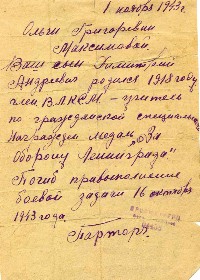 1 ноября 1943г.
Ольги Григоревни
Максимовой.
Ваш сын Дмитрий
Андреевич родился 1918 году
член ВЛКСМ – учитель
по гражданской специальнос
Награжден медаль "За
Оборону Ленинграда"
Погиб привыполнение
боевой задачи 16 октября
1943 года
Парторг.